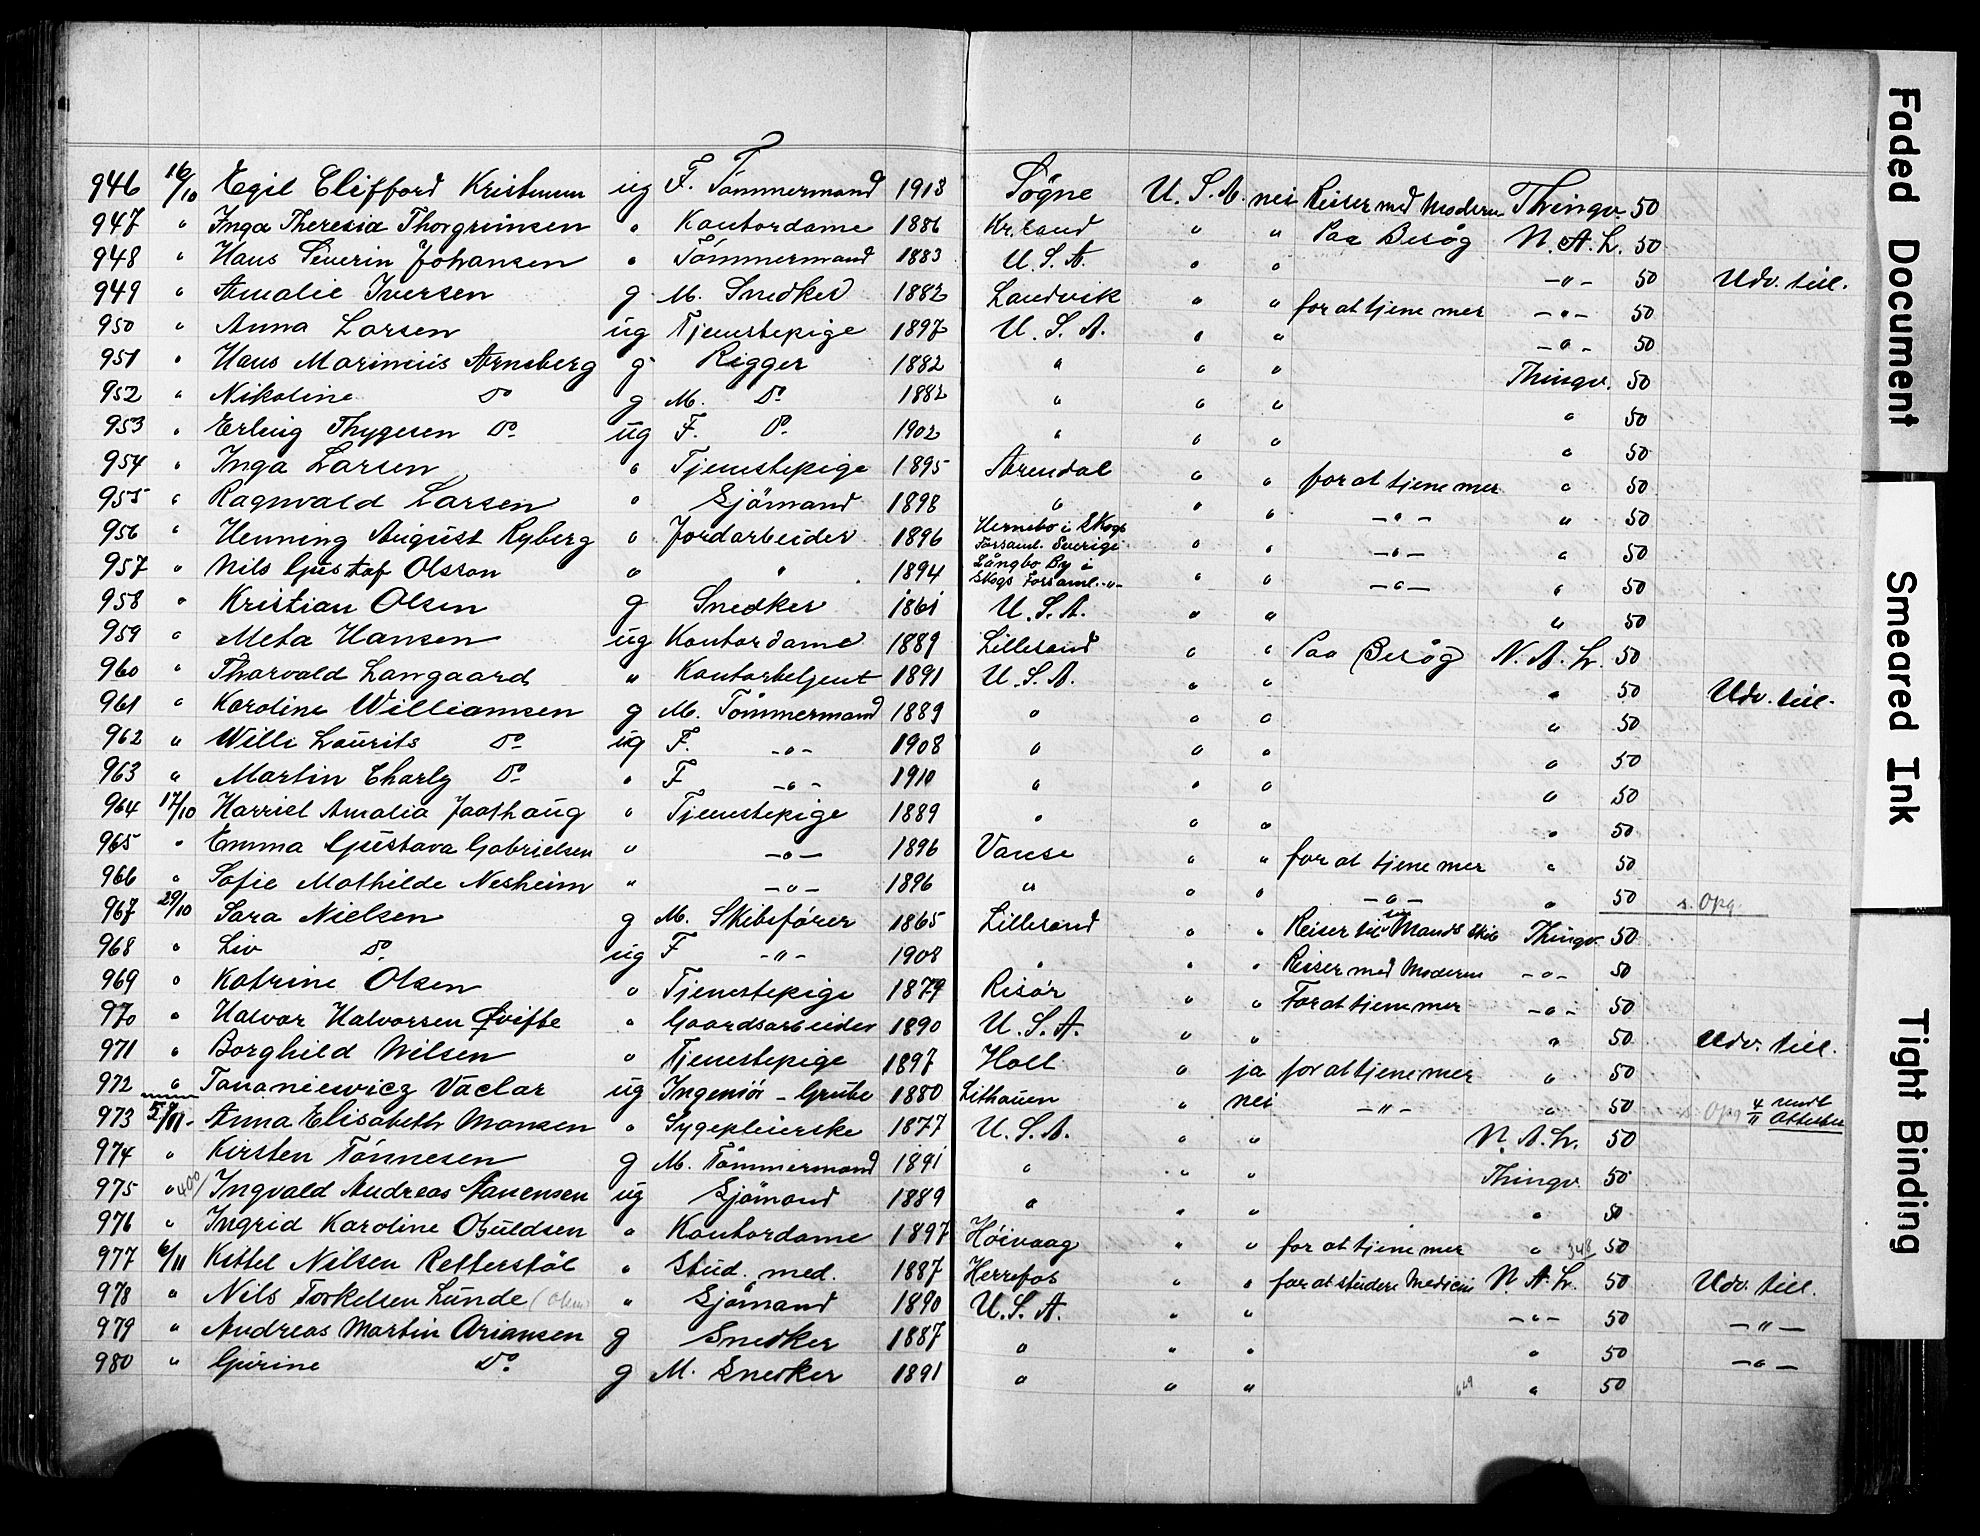 946 16/10 Egil Clifford Kristensen ug F. Tömmermand 1913 Sögne U. S. A. nei Reiser med Moderen Thingv. 50
947 " Inga Theresia Thorgrimsen " Kontordame 1886 Kr.sand " " Paa Besög N. A. L. 50
948 " Hans Severin Johansen " Tömmermand 1883 U. S. A. " " -"- 50 Udv. till.
949 " Amalie Iversen g M. Snedker 1882 Landvik " " for at tjene mer -"- 50
950 " Anna Larsen ug Tjenestepige 1897 U. S. A. " " -"- 50
951 " Hans Marinius Arneberg g Rigger 1882 " " " Thingv. 50
952 " Nikoline Do g M. Do 1882 " " " " 50
953 " Erling Thygesen Do ug F. Do 1902 " " " " 50
954 " Inga Larsen " Tjenestepige 1895 Arendal " " for at tjene mer " 50
955 " Ragnvald Larsen " Sjömand 1898 " " " -"- " 50
956 " Henning August Ryberg " Jordarbeider 1896 Hernebo i Skogs Forsaml. Sverige " " -"- " 50
957 " Nils Gustaf Olsson " " 1894 Långbo By i Skogs Forsaml. -"- " " -"- " 50
958 " Kristian Olsen g Snedker 1861 U. S. A. " " " 50
959 " Meta Hansen ug Kontordame 1889 Lillesand " " Paa Besög N. A. L. 50
960 " Tharvald Langaard " Kontorbetjent 1891 U. S. A. " " " 50 Udv. till.
961 " Karoline Williamsen g M. Tömmermand 1889 " " " " 50
962 " Willi Laurits Do ug F. -"- 1908 " " " " 50
963 " Martin Charly Do " F -"- 1910 " " " " 50
964 17/10 Harriet Amalia Jaathaug " Tjenestepige 1889 " " " " 50
965 " Emma Gustava Gabrielsen " -"- 1896 Vanse " " for at tjene mer " 50
966 " Sofie Mathilde Nesheim " -"- 1896 " " " -"- " 50 s. Opg.
967 29/10 Sara Nielsen g M. Skibsfører 1865 Lillesand " " Reiser til sin Mands Skib Thingv. 50
968 " Liv Do ug F -"- 1908 " " " Reiser med Moderen -"- 50
969 " Katrine Olsen " Tjenestepige 1879 Risör " " For at tjene mer -"- 50
970 " Halvor Halvorsen Qvifte " Gaardsarbeider 1890 U. S. A. " " " 50 Udv. till.
971 " Borghild Nilsen " Tjenestepige 1897 Holt " ja for at tjene mer " 50
972 " Tananiewicz Vaclar ug Ingeniör - Grube 1880 Lithauen " nei -"- " 50 s. Opg 4/11 sendt Attester
973 5/11 Anna Elisabeth Monsen " Sygepleierske 1877 U. S. A. " " N. A. L. 50
974 " Kirsten Tönnesen g M. Tömmermand 1891 " " " Thingv. 50
975 " 400 Ingvald Andreas Aanensen ug Sjömand 1889 " " " " 50
976 " Ingrid Karoline Osuldsen " Kontordame 1897 Höivaag " " for at tjene mer " 348 50
977 6/11 Kittel Nilsen Retterstöl " Stud. med. 1887 Herrefos " " for at studere Medicin N. A. L. 50 Udv. till.
978 " Nils Torkelsen Lunde " Sjömand 1890 U. S. A. " " -"- 50 -"-
979 " Andreas Martin Ariansen g Snedker 1887 " " " " 50 -"-
980 " Gurine Do g M. Snedker 1891 " " " 649 " 50
Faded Document
Smeared Ink
Tight Binding